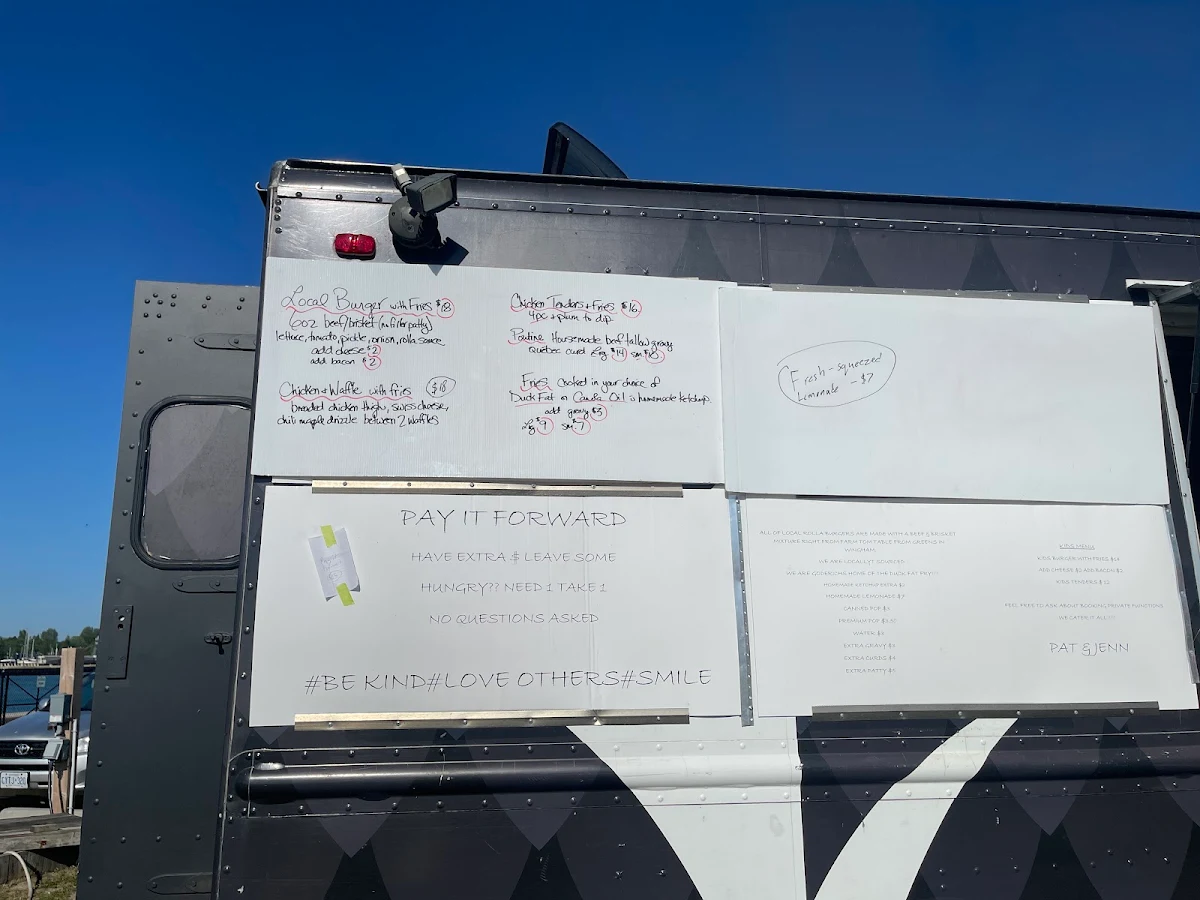 Local Burger with Fries $18
6oz beef/brisket (no filler patty)
lettuce, tomato, pickle, onion, rolla sauce
add cheese $2
add bacon $2
Chicken & Waffle with fries $18
breaded chicken thigh, swiss cheese,
chili maple drizzle between 2 waffles
Chicken Tenders & Fries $16
4pc + plum to dip
Poutine Housemade beef tallow gravy
Quebec curd Lrg $14 sm $10
Fries Cooked in your choice of
Duck Fat or Canola Oil & homemade ketchup
add gravy $3
Lrg $9 sm $7
Fresh-squeezed
Lemonade - $7
PAY IT FORWARD
HAVE EXTRA $ LEAVE SOME
HUNGRY?? NEED 1 TAKE 1
NO QUESTIONS ASKED
#BE KIND#LOVE OTHERS#SMILE
ALL OF LOCAL ROLLA BURGERS ARE MADE WITH A BEEF & BRISKET
MIXTURE RIGHT FROM FARM TO TABLE FROM GREEN'S IN
WINGHAM.
WE ARE LOCALLY SOURCED
WE ARE GODERICHS HOME OF THE DUCK FAT FRY!!!
HOMEMADE KETCHUP EXTRA $2
HOMEMADE LEMONADE $7
CANNED POP $2
PREMIUM POP $3.50
WATER $2
EXTRA GRAVY $3
EXTRA CURDS $4
EXTRA PATTY $5
KIDS MENU
KIDS BURGER WITH FRIES
ADD CHEESE $2 ADD BACON $2
KIDS TENDERS $12
FEEL FREE TO ASK ABOUT BOOKING PRIVATE FUNCTIONS
WE CATER IT ALL!!!!
PAT & JENN